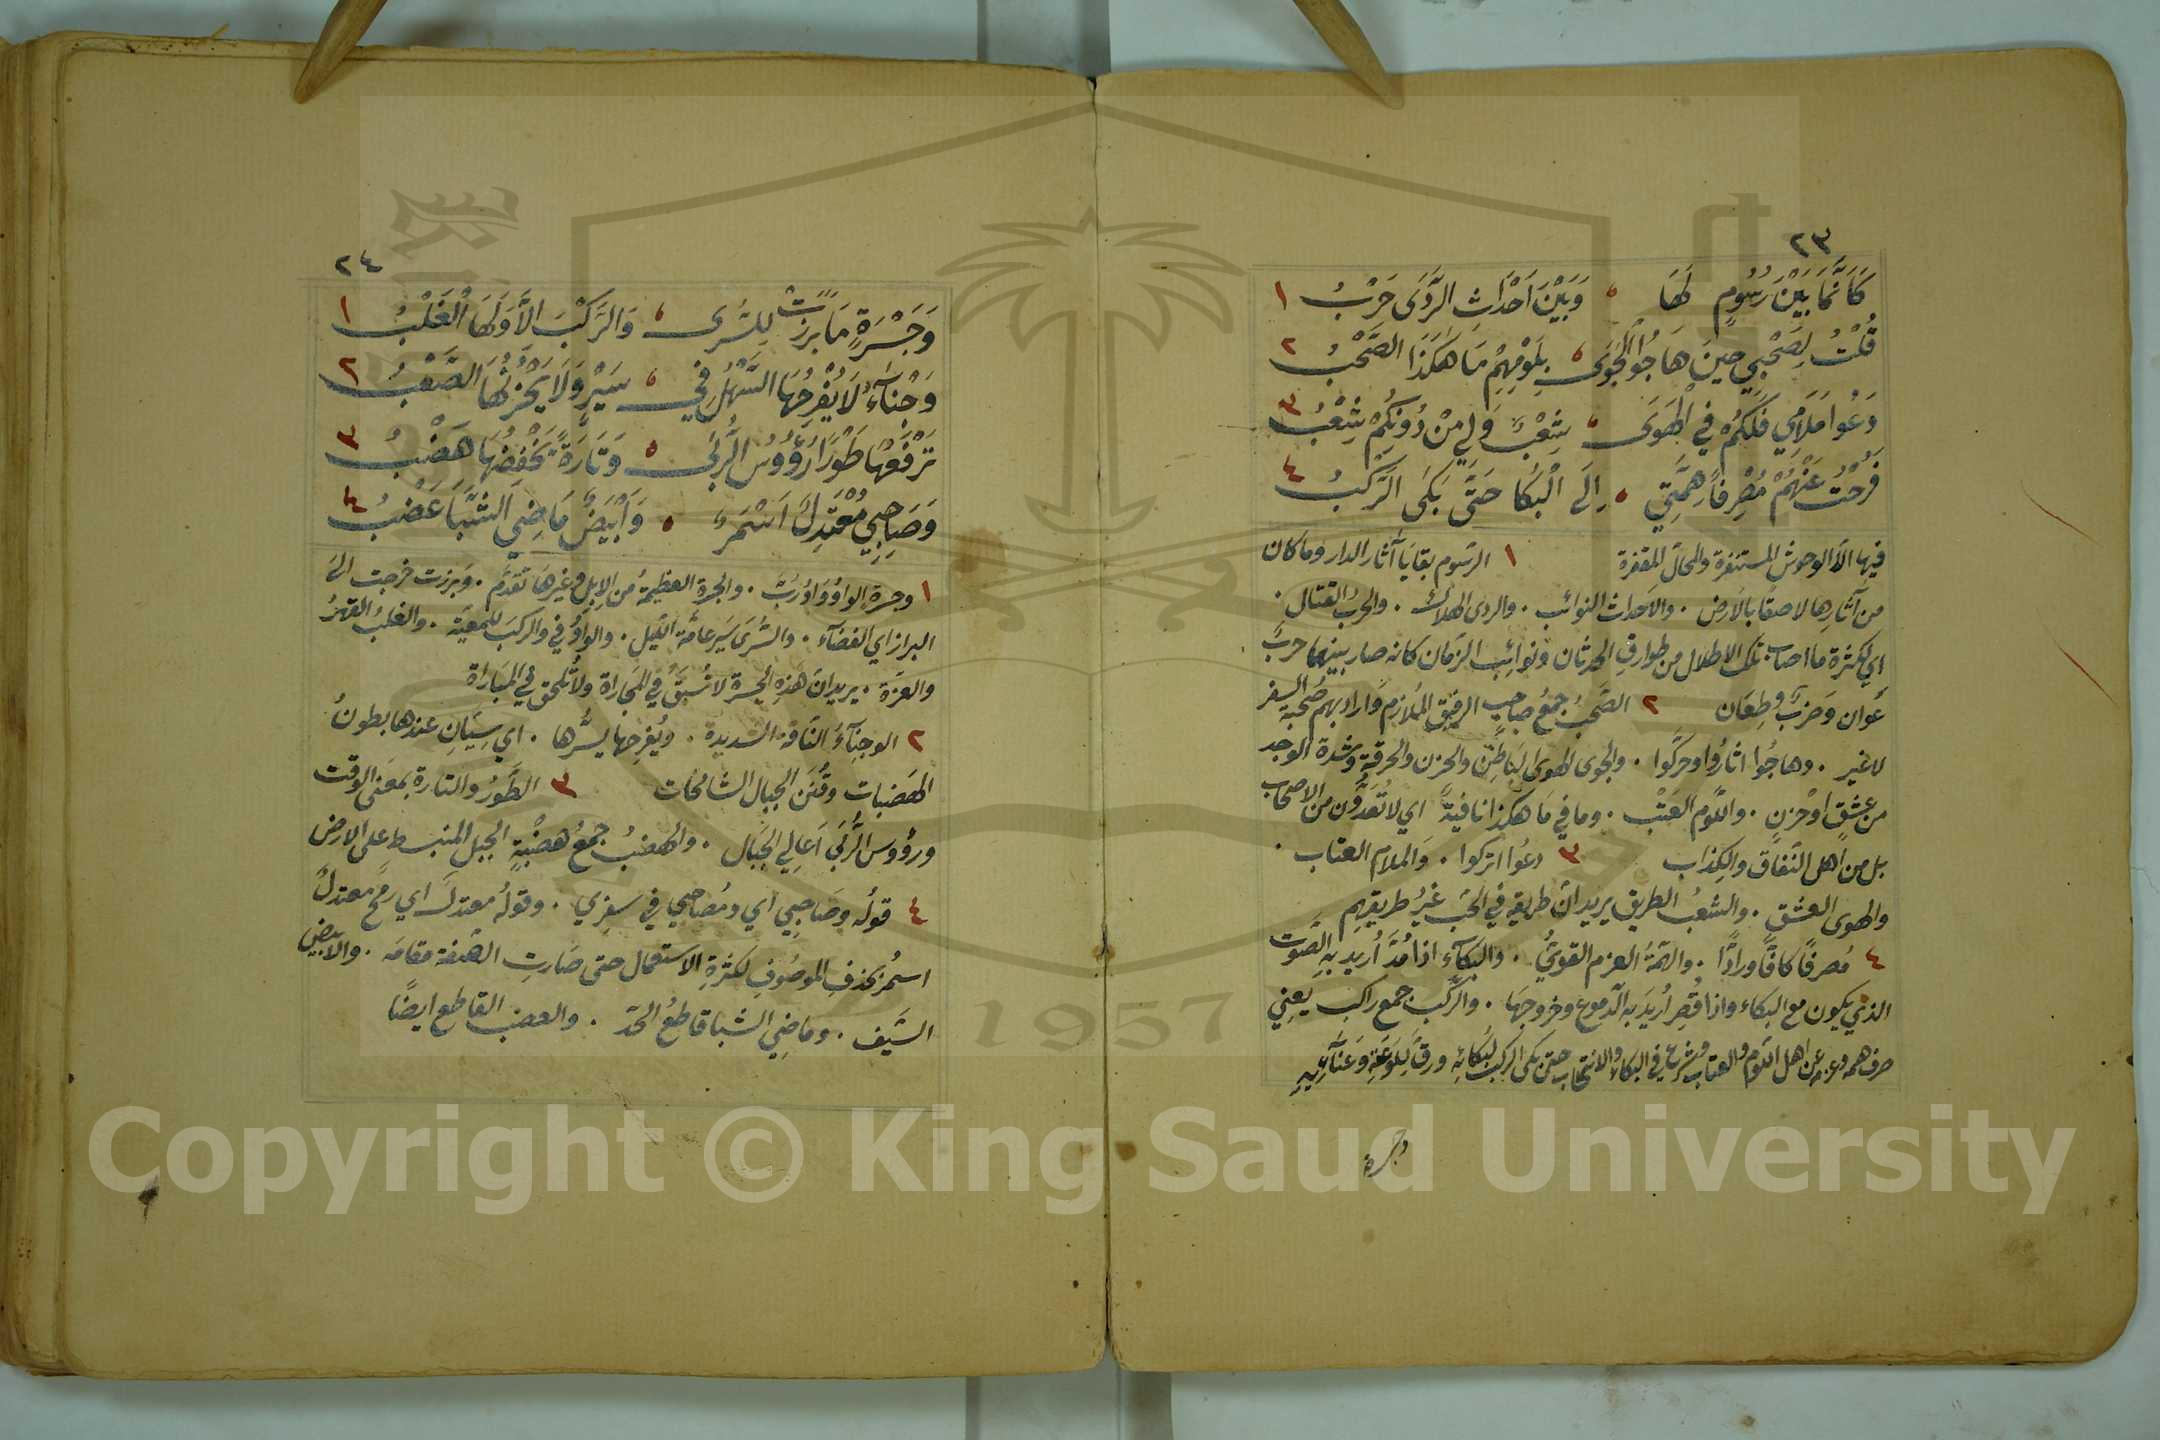 ٢٣
كَأَنَّمَا بَيْنَ رُسُومٍ لَهَا ، وَبَيْنَ اَحْدَاثِ الرَّدَى حَرْبُ ١
قُلْتُ لِصَحْبِي حِينَ هَاجُوا الْجَوَى ، بِلَوْمِهِمْ مَا هٰكَذَا الصَّحْبُ ٢
دَعُوا مَلَامِي فَلَكُمْ فِي الْهَوَى ، شِعْبٌ وَلِي مِنْ دُونِكُمْ شِعْبُ ٣
فَرُحْتُ عَنْهُمْ مُصْرِفًا هِمَّتِي ، اِلَى الْبُكَا حَتَّى بَكَى الرَّكْبُ ٤
فيها الّا الوحوش المستنفرة والمحال المقفرة ١ الرسوم بقايا آثار الدار وما كان
من آثارها لاصقًا بالارض . والاحداث النوائب . والردى الهلاك . والحرب القتال .
اي لكثرة ما اصاب تلك الاطلال من طوارق الحدثان ونوائب الزمان كانه صار بينهما حرب
عوان وضرب وطعان ٢ الصحب جمع صاحب الرفيق الملازم واراد بهم صحبة السفر
لا غير . وهاجوا اثاروا وحركوا . والجوى الهوى الباطن والحزن والحرقة وشدة الوجد
من عشق او حزن . واللوم العتب . وما في ما هكذا نافية اي لا تعدون من الاصحاب
بل من اهل النفاق والكذاب ٣ دعوا اتركوا . والملام العتاب .
والهوى العشق . والشعب الطريق يريد ان طريقه في الحب غير طريقهم
٤ مصرفًا كافًّا ورادًّا . والهمة العزم القوي . والبكاء اذا مُدَّ اُريد به الصوت
الذي يكون مع البكاء واذا قُصِر اُريد به الدموع وخروجها . والركب جمع راكب يعني
صرف همه وعزمه عن اهل اللوم والعتاب وشرع في البكاء والانتحاب حتى بكى الركب لبكائه ورق للوعته وعنائه
وجسرة
٢٤
وَجَسْرَةٍ مَا بَرَزَتْ لِلسُّرَى ، وَالرَّكْبَ الَّا وَلَهَا الْغَلْبُ ١
وَجْنَاءُ لَا يُفْرِحُهَا السَّهْلُ فِي ، سَيْرٍ وَلَا يَحْزُنُهَا الصَّعْبُ ٢
تَرْفَعُهَا طَوْرًا رُؤُوسُ الرُّبَى ، وَتَارَةً تَخْفِضُهَا هَضْبُ ٣
وَصَاحِبِي مُعْتَدِلٌ اَسْمَرٌ ، وَاَبْيَضٌ مَاضِي الشَّبَا عَضْبُ ٤
١ وجسرة الواو واو رُبّ . والجسرة العظيمة من الابل وغيرها تقدم . وبرزت خرجت الى
البراز اي الفضاء . والسُرى سير عامة الليل . والواو في والركب للمعية . والغلب القهر
والعزة . يريد ان هذه الجسرة لا تُسبق في المجاراة ولا تُلحق في المباراة
٢ الوجناء الناقة الشديدة . ويُفرحها يسرها . اي سيّان عندها بطون
الهضبات وقنن الجبال الشامخات ٣ الطور والتارة بمعنى الوقت
ورؤوس الرُبى اعالي الجبال . والهضب جمع هضبة الجبل المنبسط على الارض
٤ قوله وصاحبي اي ومصاحبي في سفري . وقوله معتدل اي رمح معتدل
اسمر بحذف الموصوف لكثرة الاستعمال حتى صارت الصفة مقامه . والابيض
السيف . وماضي الشبا قاطع الحد . والعضب القاطع ايضًا
1957
Copyright © King Saud University